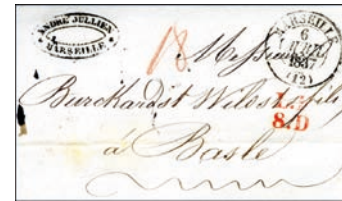 ANDRÉ JULLIEN
MARSEILLE
MARSEILLE
6
1837
(12)
18
Messieurs
Burckardt Wildt & fils
8.D
à Basle